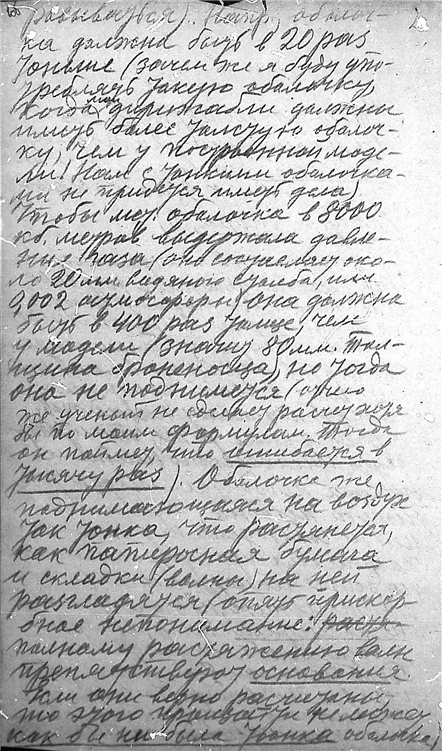 разовьется). Напр., оболоч-
ка должна быть в 20 раз
тоньше (зачем же я буду упо-
треблять такую оболочку,
когда мои дирижабли должны
иметь более толстую оболоч-
ку, чем у построенной моде-
ли! Нам с тонкими оболочка-
ми не придется иметь дела)
Чтобы мет. оболочка в 8000
кб. метров выдержала давле-
ние газа (оно составляет око-
ло 20 мм водяного столба, или
0,002 атмосферы) она должна
быть в 400 раз толще, чем
у модели (значит 80 мм. Тол-
щина броненосца), но тогда
она не поднимется (отчего
же ученый не сделает расчет хотя
бы по моим формулам. Тогда
он поймет, что ошибается в
тысячу раз). Оболочка же
поднимающаяся на воздух
так тонка, что растянется,
как папиросная бумага
и складки (волны) на ней
разгладятся (опять прискор-
бное непонимание:
полному растяжению волн
препятствуют основания
Если они верно рассчитаны
то этого произойти не может
как бы ни была тонка оболочка)